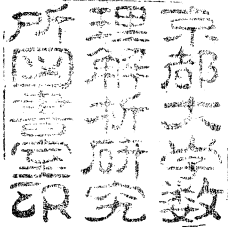 京都大学数
理解析研究
所図書室印